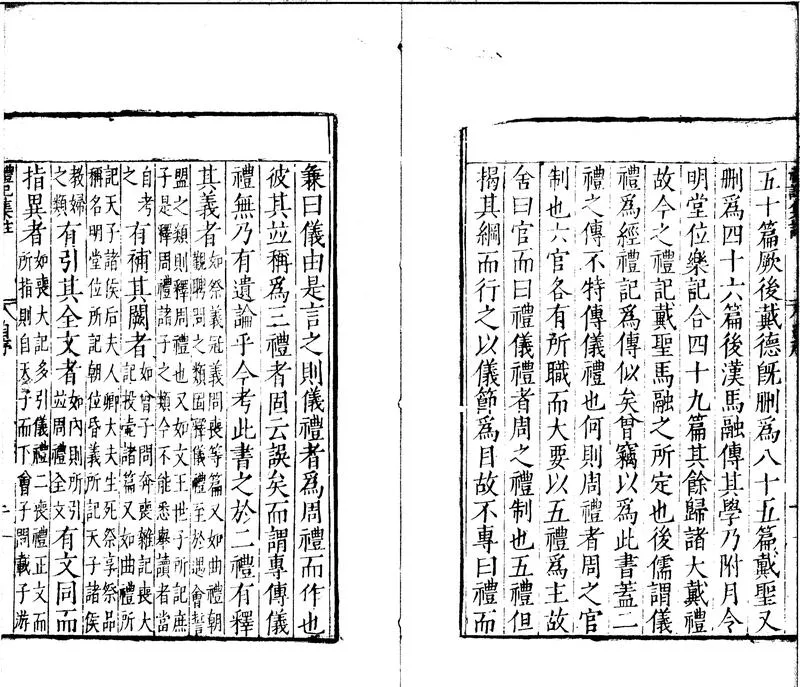 五十篇厥後戴德旣刪爲八十五篇戴聖又
刪爲四十六篇後漢馬融傳其學乃附月令
明堂位樂記合四十九篇其餘歸諸大戴禮
故今之禮記戴聖馬融之所定也後儒謂儀
禮爲經禮記爲傳似矣曾竊以爲此書蓋二
禮之傳不特傳儀禮也何則周禮者周之官
制也六官各有所職而大要以五禮爲主故
舍曰官而曰禮儀禮者周之禮制也五禮但
揭其綱而行之以儀節爲目故不專曰禮而
兼曰儀由是言之則儀禮者爲周禮而作也
彼其竝稱爲三禮者固云誤矣而謂專傳儀
禮無乃有遺論乎今考此書之於二禮有釋
其義者如祭義冠義問喪等篇又如曲禮朝觀聘問之類固釋儀禮至於遇會誓
盟之類則釋周禮也又如文王世子所記庶子是釋周禮諸子之類今不能悉舉讀者當
自考之有補其闕者如曾子問奔喪雜記喪大記投壺諸篇又如曲禮所
記天子諸侯后夫人卿大夫生死祭享祭品稱名明堂位所記朝位昏義所記天子諸侯
教婦之類有引其全文者如內則所引竝周禮全文有文同而
指異者如喪大記多引儀禮二喪禮正文而所指則自天子而下曾子問載子游
禮記集註